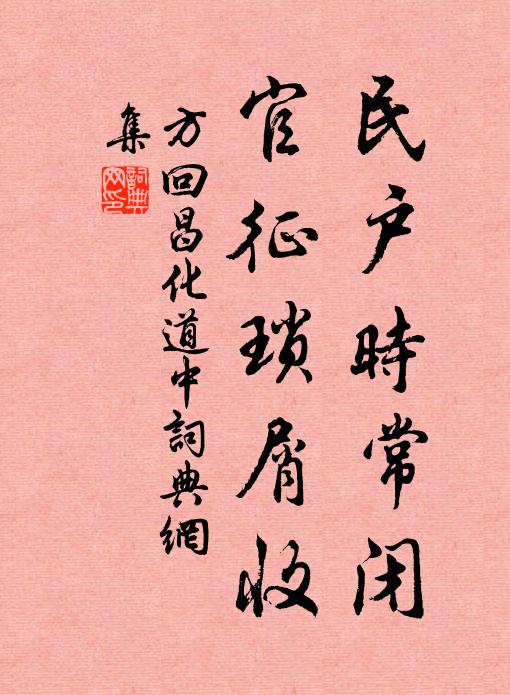 民户時常闭
官征瑣屑收
方回昌化道中詞典網
集
詞典网印